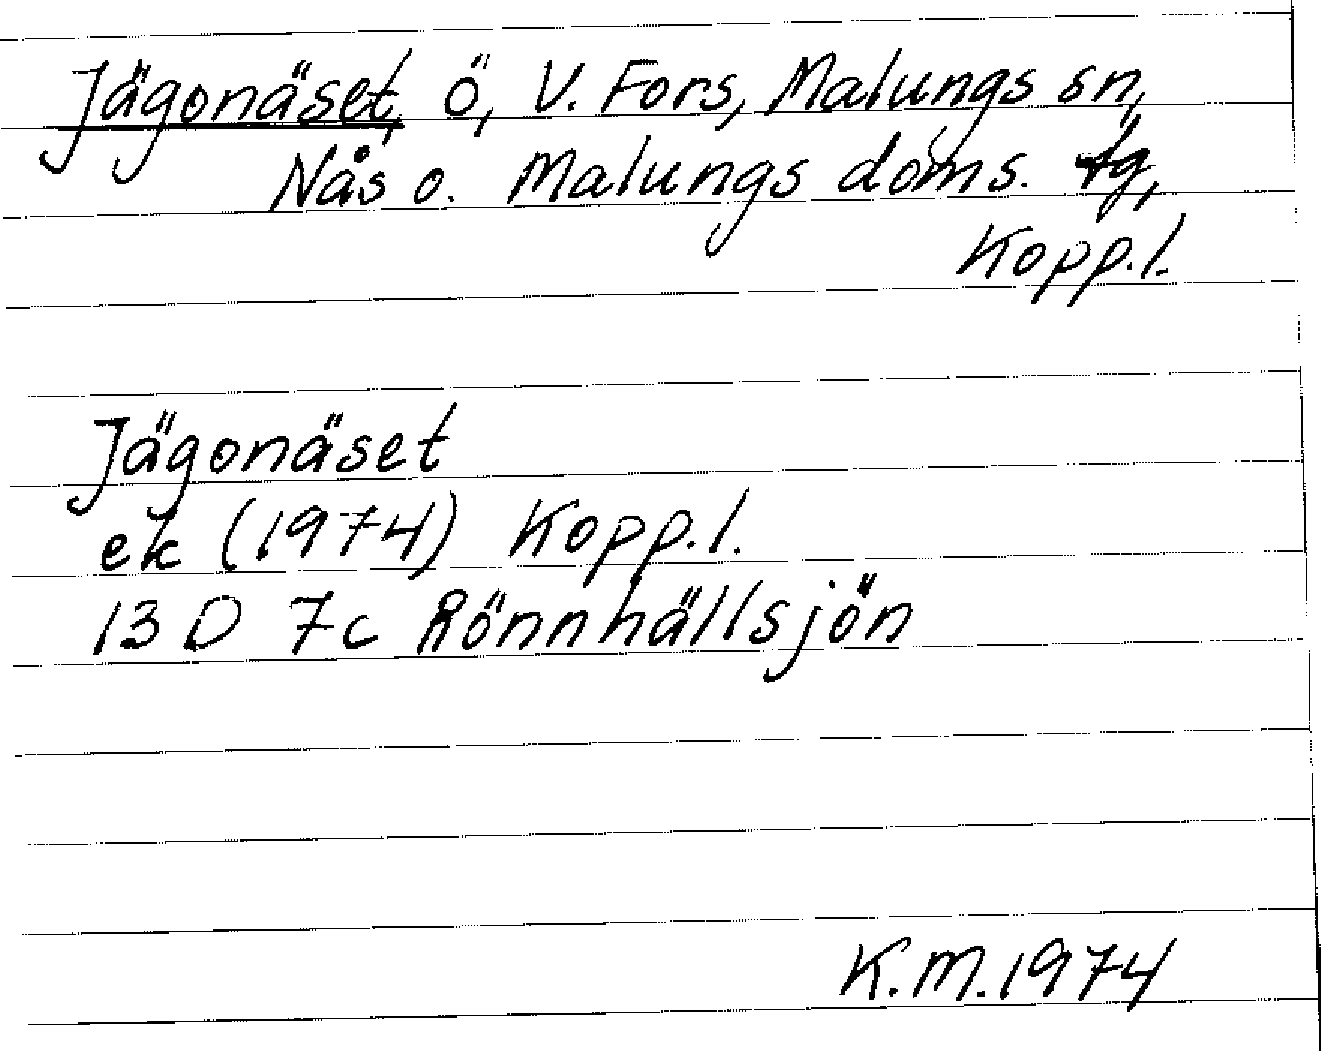 Jägonäset, ö, V. Fors, Malungs sn,
Nås o. Malungs doms. tg,
Kopp.l.
Jägonäset
ek (1974) Kopp.l.
13 D 7c Rönnhällsjön
K.M. 1974